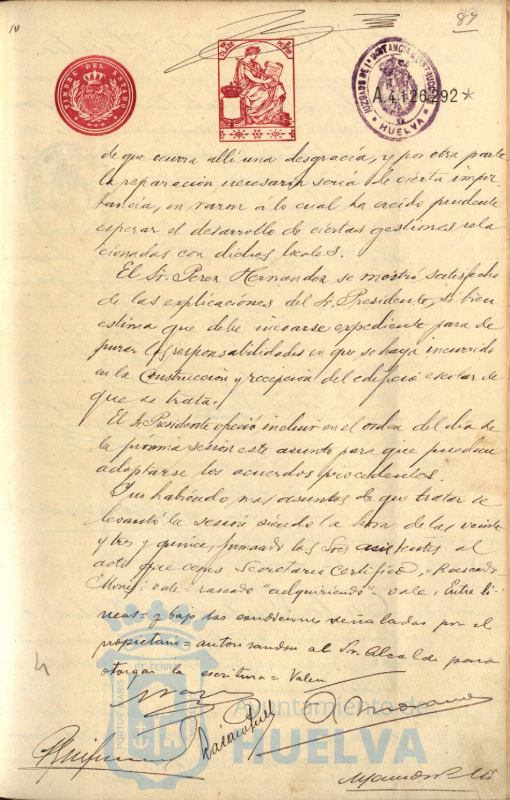 10
87
TIMBRE DEL ESTADO
JUZGADO DE 1ª INSTANCIA E INSTRUCCION
HUELVA
A.4.126.292*
de que ocurra alli una desgracia, y por otra parte
la reparacion necesaria seria de cierta impor-
tancia, en razon á lo cual ha creido prudente
esperar el desarrollo de ciertas gestiones rela
cionadas con dichos locales.
El Sr. Perez Hernandez se mostró satisfecho
de las explicaciones del Sr. Presidente, si bien
estima que debe incoarse expediente para de
purar las responsabilidades en que se haya incurrido
en la construccion y recepcion del edificio escolar de
que se trata.
El Sr. Presidente ofreció incluir en el orden del dia de
la próxima sesion este asunto para que puedan
adoptarse los acuerdos procedentes.
Y no habiendo mas asuntos de que tratar se
levantó la sesion siendo la hora de las veinte
y tres y quince, firmando los Sres asistentes al
acto que como Secretario certifico. Rascado
vale rascado "adquiriendo" vale. Entre li-
neas = y bajo las condiciones señaladas por el
propietario = autorizandou al Sr. Alcalde para
otorgar la escritura = Valen
PORTUS MARIS ET TERRAE
Ayuntamiento de
HUELVA